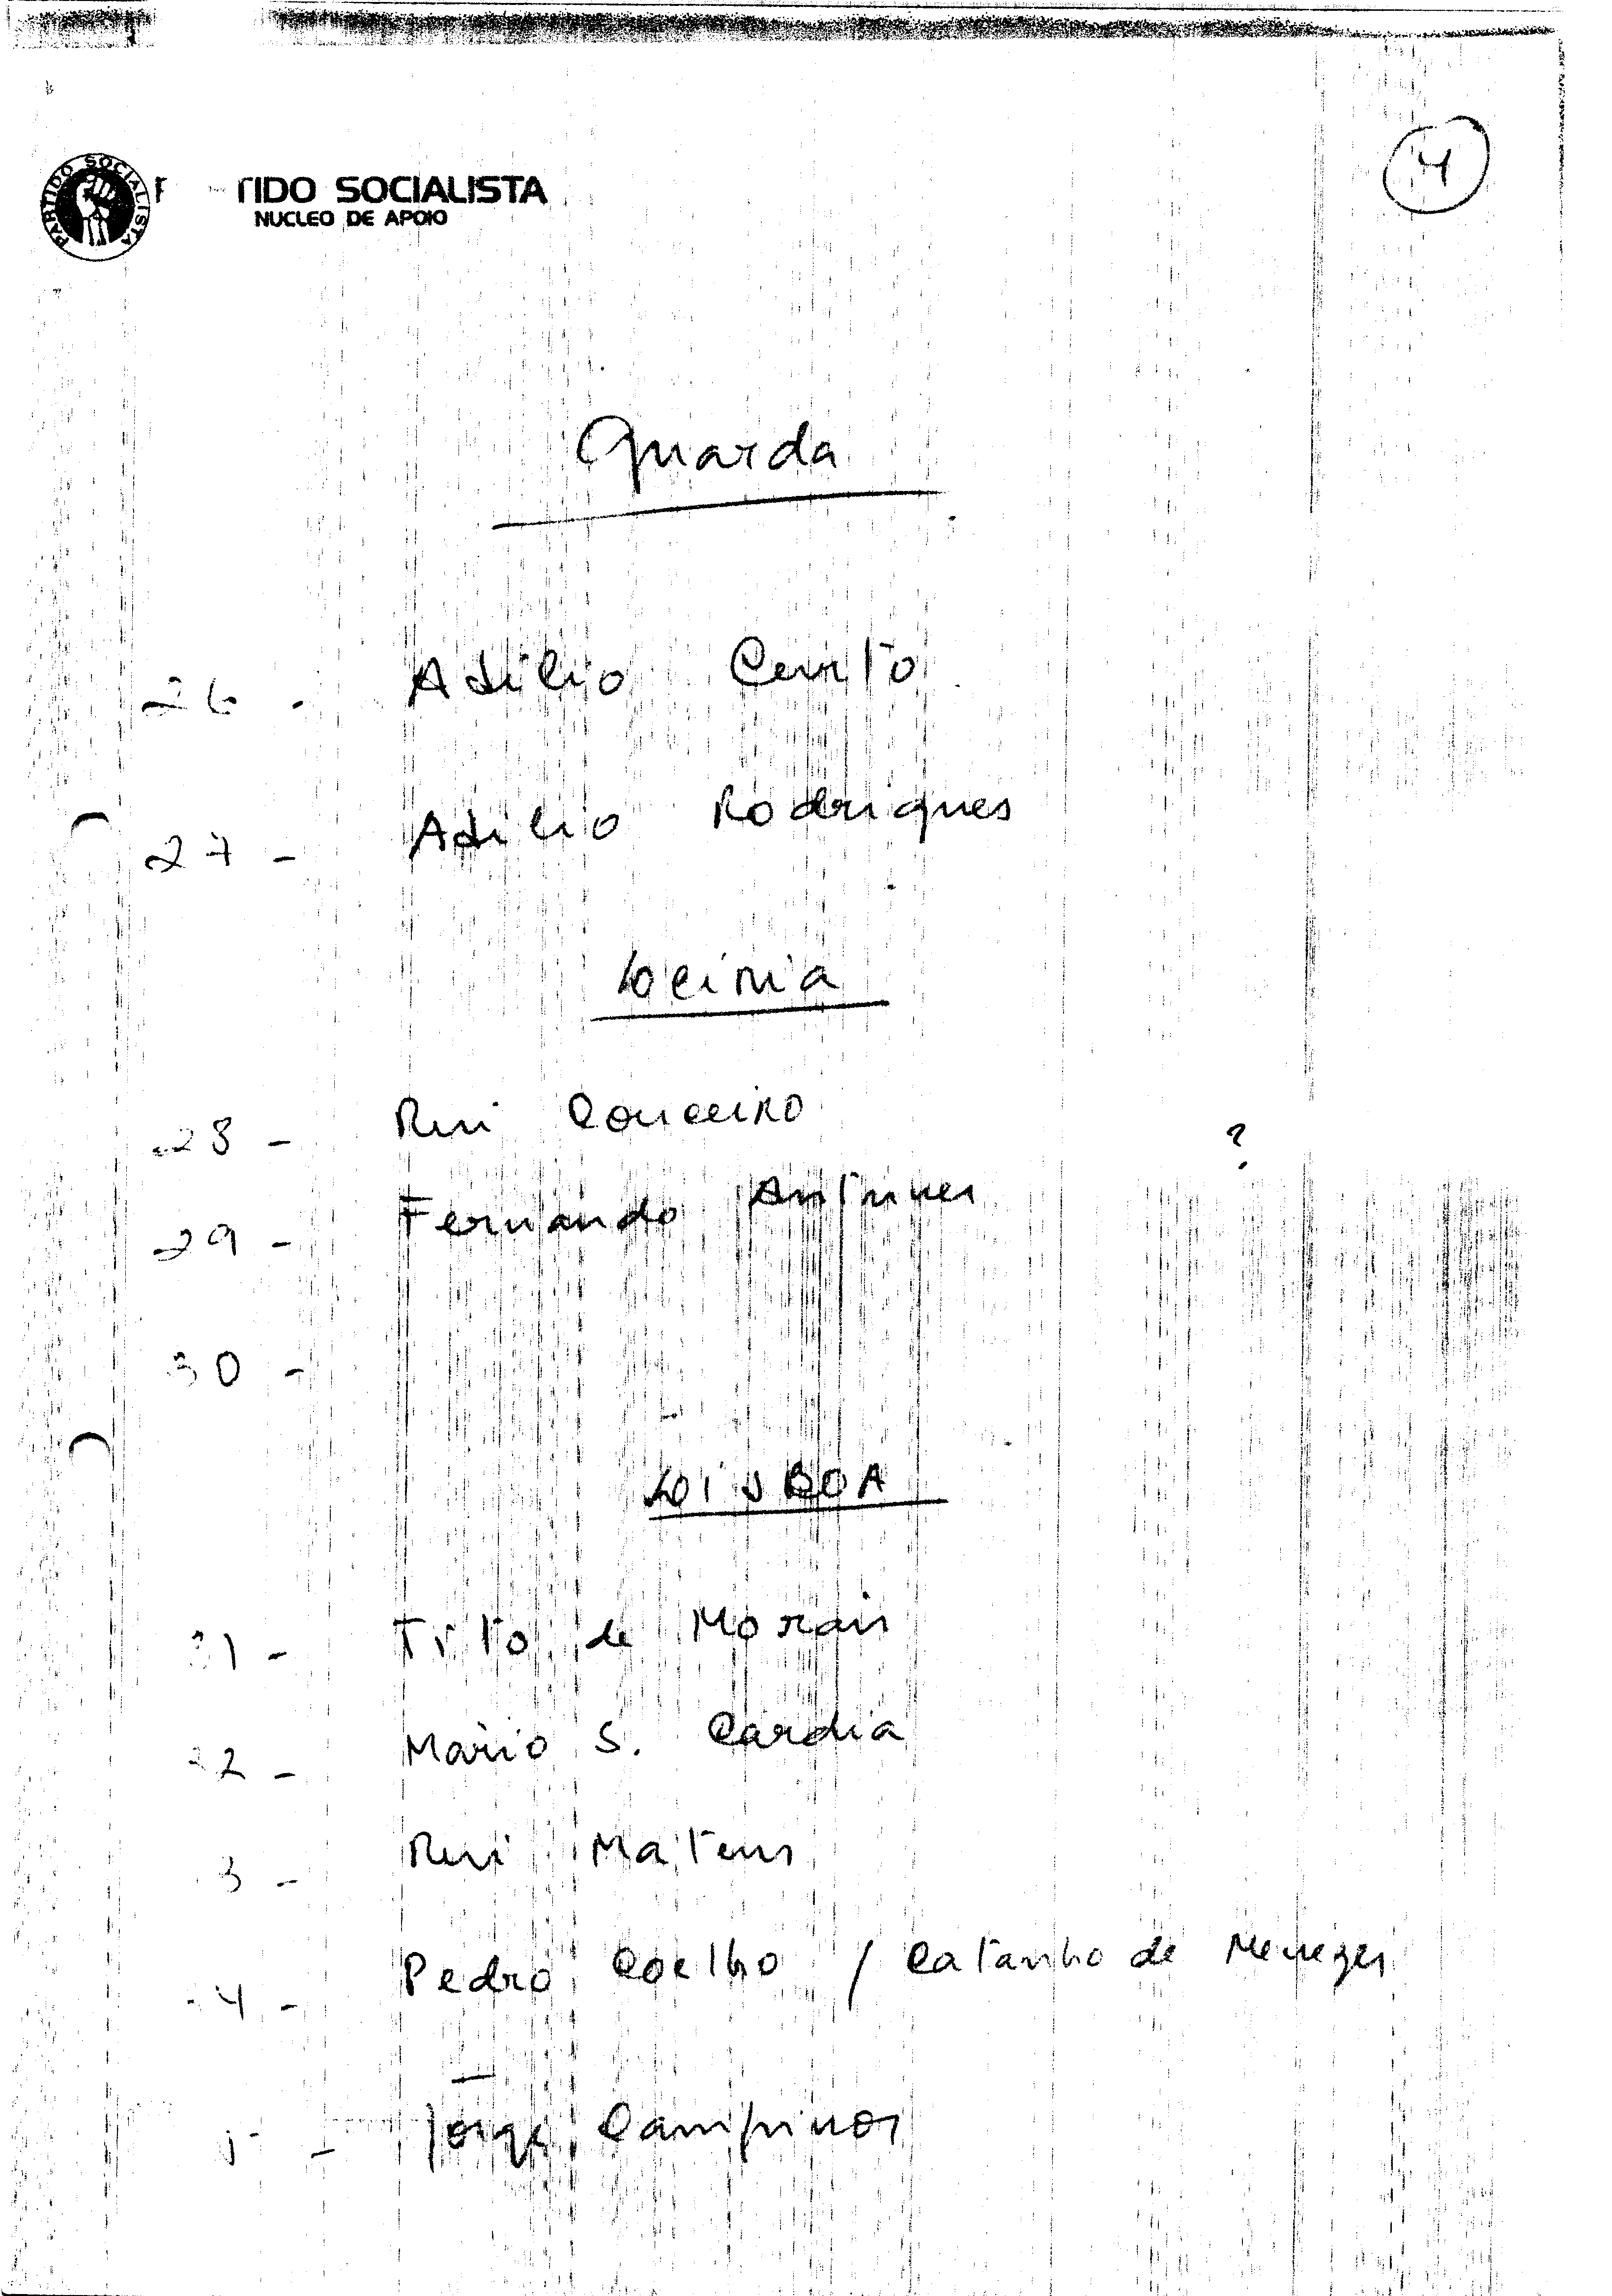 PARTIDO SOCIALISTA
TIDO SOCIALISTA
NUCLEO DE APOIO
4
Guarda
26 - Adilio
27 - Adilio Rodrigues
Leiria
28 - Rui Couceiro
?
29 - Fernando Antunes
30 -
LISBOA
31 - Tito de Morais
32 - Mario S. Cardia
3 - Rui Mateus
4 - Pedro Coelho / Catanho de Menezes
5 - Jorge Campinos